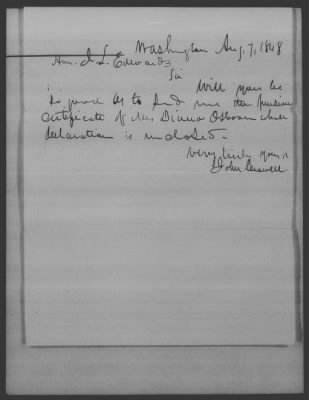 Washington Aug. 7, 1848
Hon. J. L. Edwards
Sir
Will you be
so good as to send me the pension
certificate of Mrs Diana Osborn whose
declaration is inclosed.
Very truly yours
John